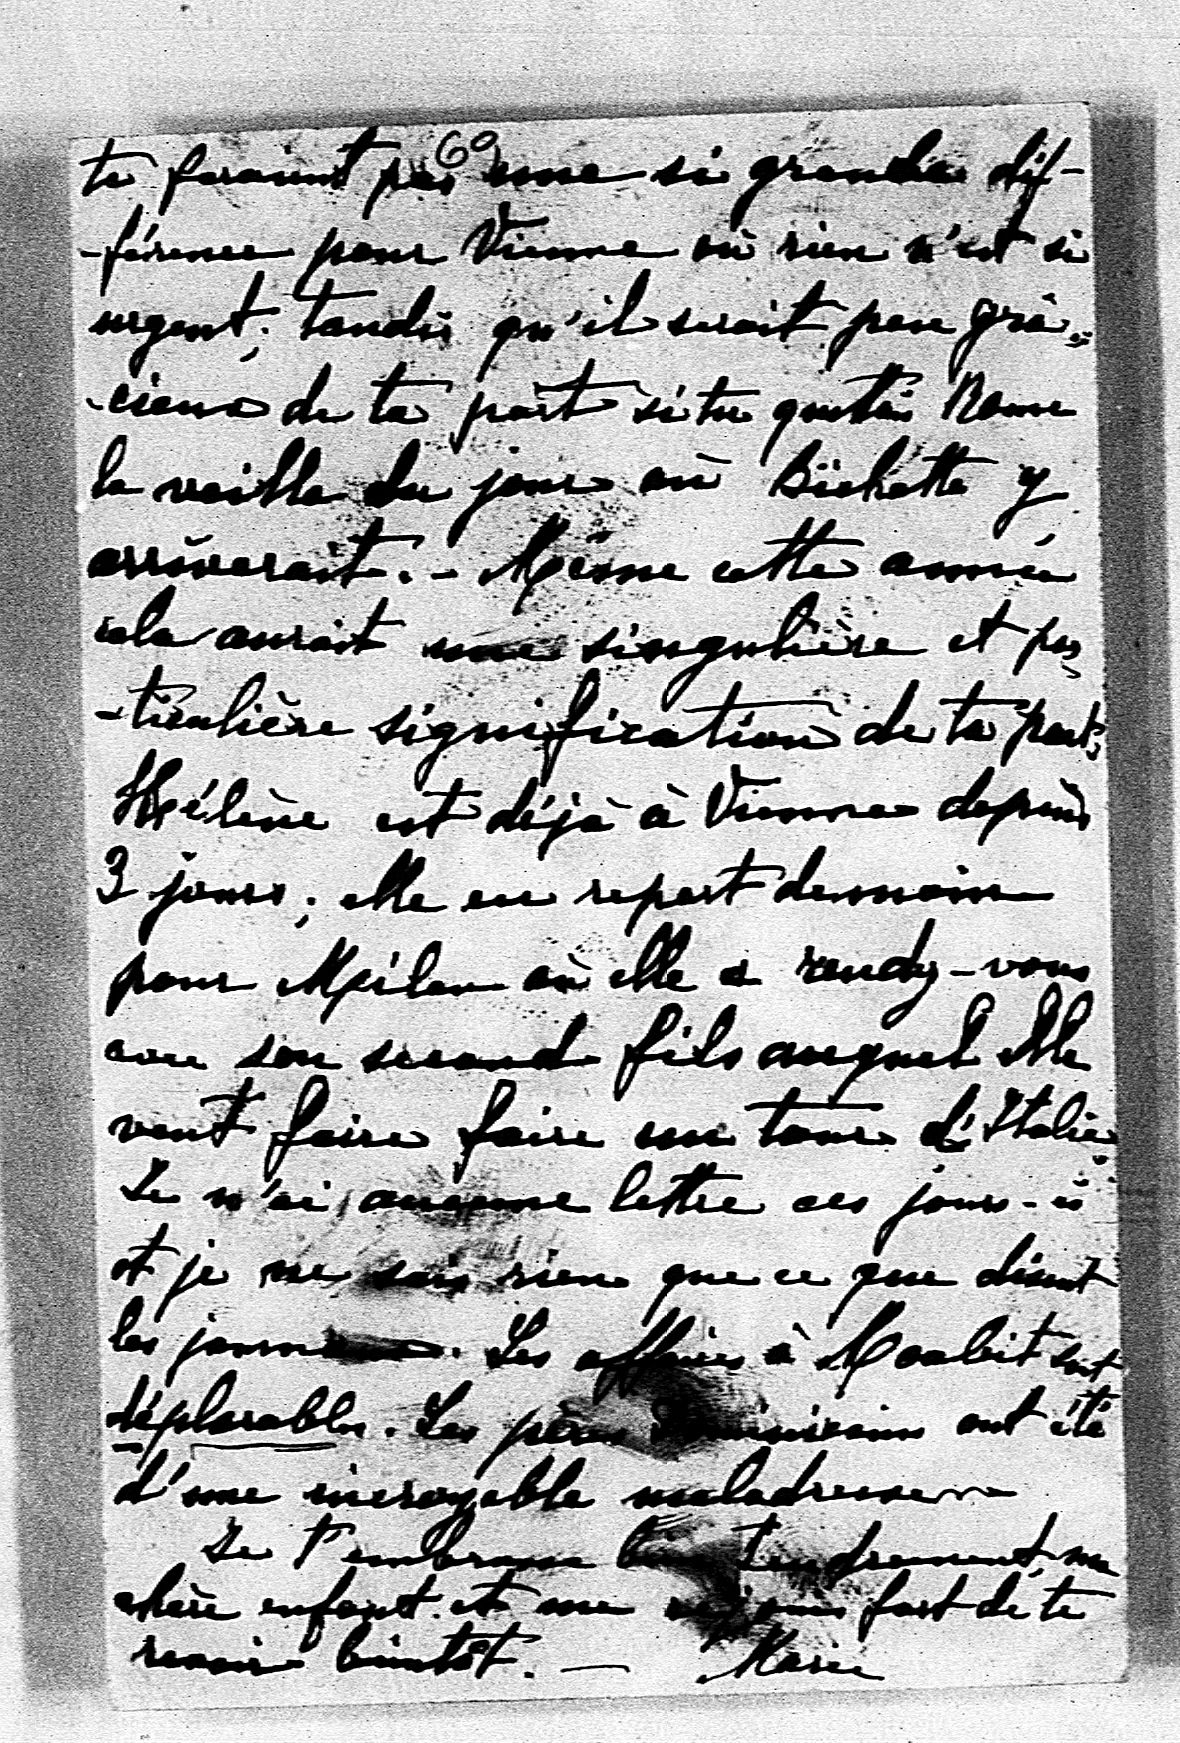 60
te feraient pas une si grande dif-
-férence pour Vienne où rien n'est si
urgent; tandis qu'il serait peu gra-
-cieux de ta part si tu quittais Rome
la veille du jour où Bichette y
arriverait. - Même cette année
cela aurait une singulière et par
-ticulière signification de ta part.
Hélène est déjà à Vienne depuis
3 jours; elle en repart demain
pour Milan où elle a rendez-vous
avec son second fils auquel elle
veut faire faire un tour d'Italie.
Je n'ai aucune lettre ces jours-ci
et je ne sais rien que ce que disent
les journaux. Les affaires à Moabit sont
déplorables. Les pères Dominicains ont été
d'une incroyable maladresse
Je t'embrasse bien tendrement, ma
chère enfant et me réjouis fort de te
revoir bientôt. — Marie